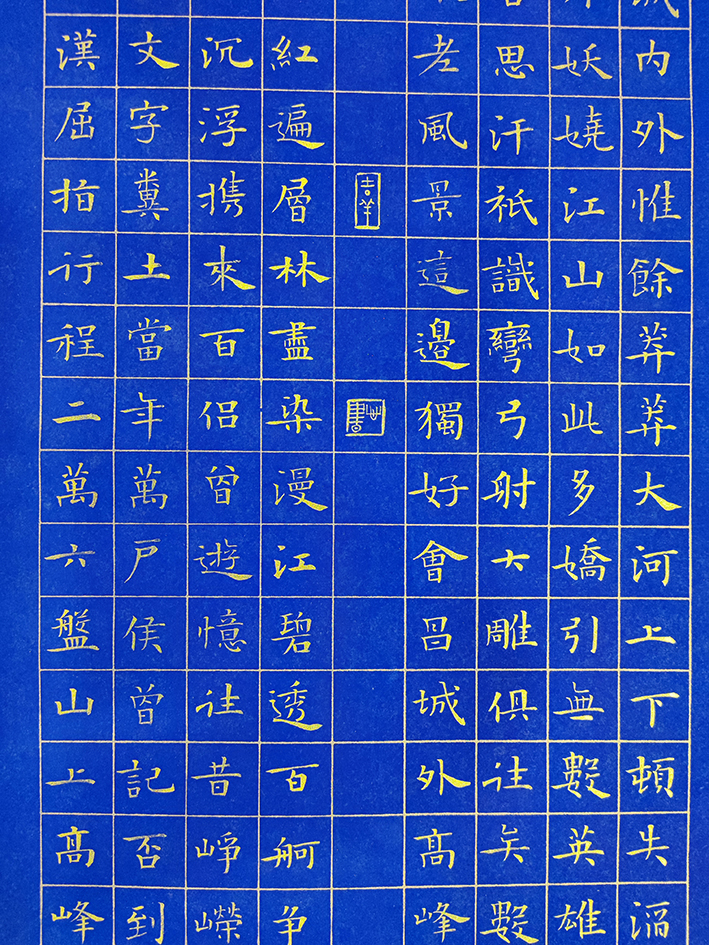 内外惟餘莽莽大河上下頓失滔
妖嬈江山如此多嬌引無數英雄
思汗祇識彎弓射大雕俱往矣數
老風景這邊獨好會昌城外髙峰
吉羊
紅遍層林盡染漫江碧透百舸争
沉浮携來百侣曾遊憶往昔崢嶸
文字糞土當年萬户侯曾記否到
漢屈指行程二萬六盤山上髙峰